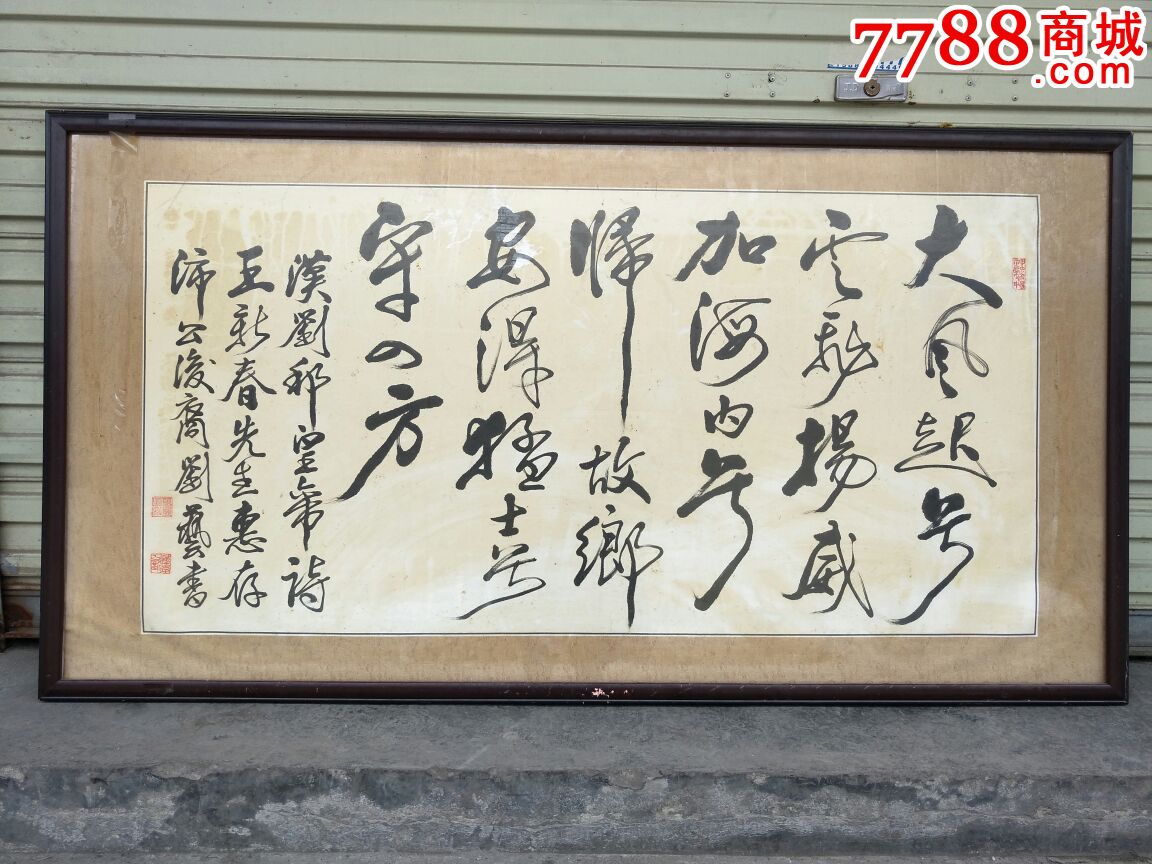 7788商城
.com
大风起兮
云飛揚威
加海内兮
歸故鄉
安得猛士兮
守四方
漢劉邦皇帝詩
王新春先生惠存
沛公後裔劉藝書